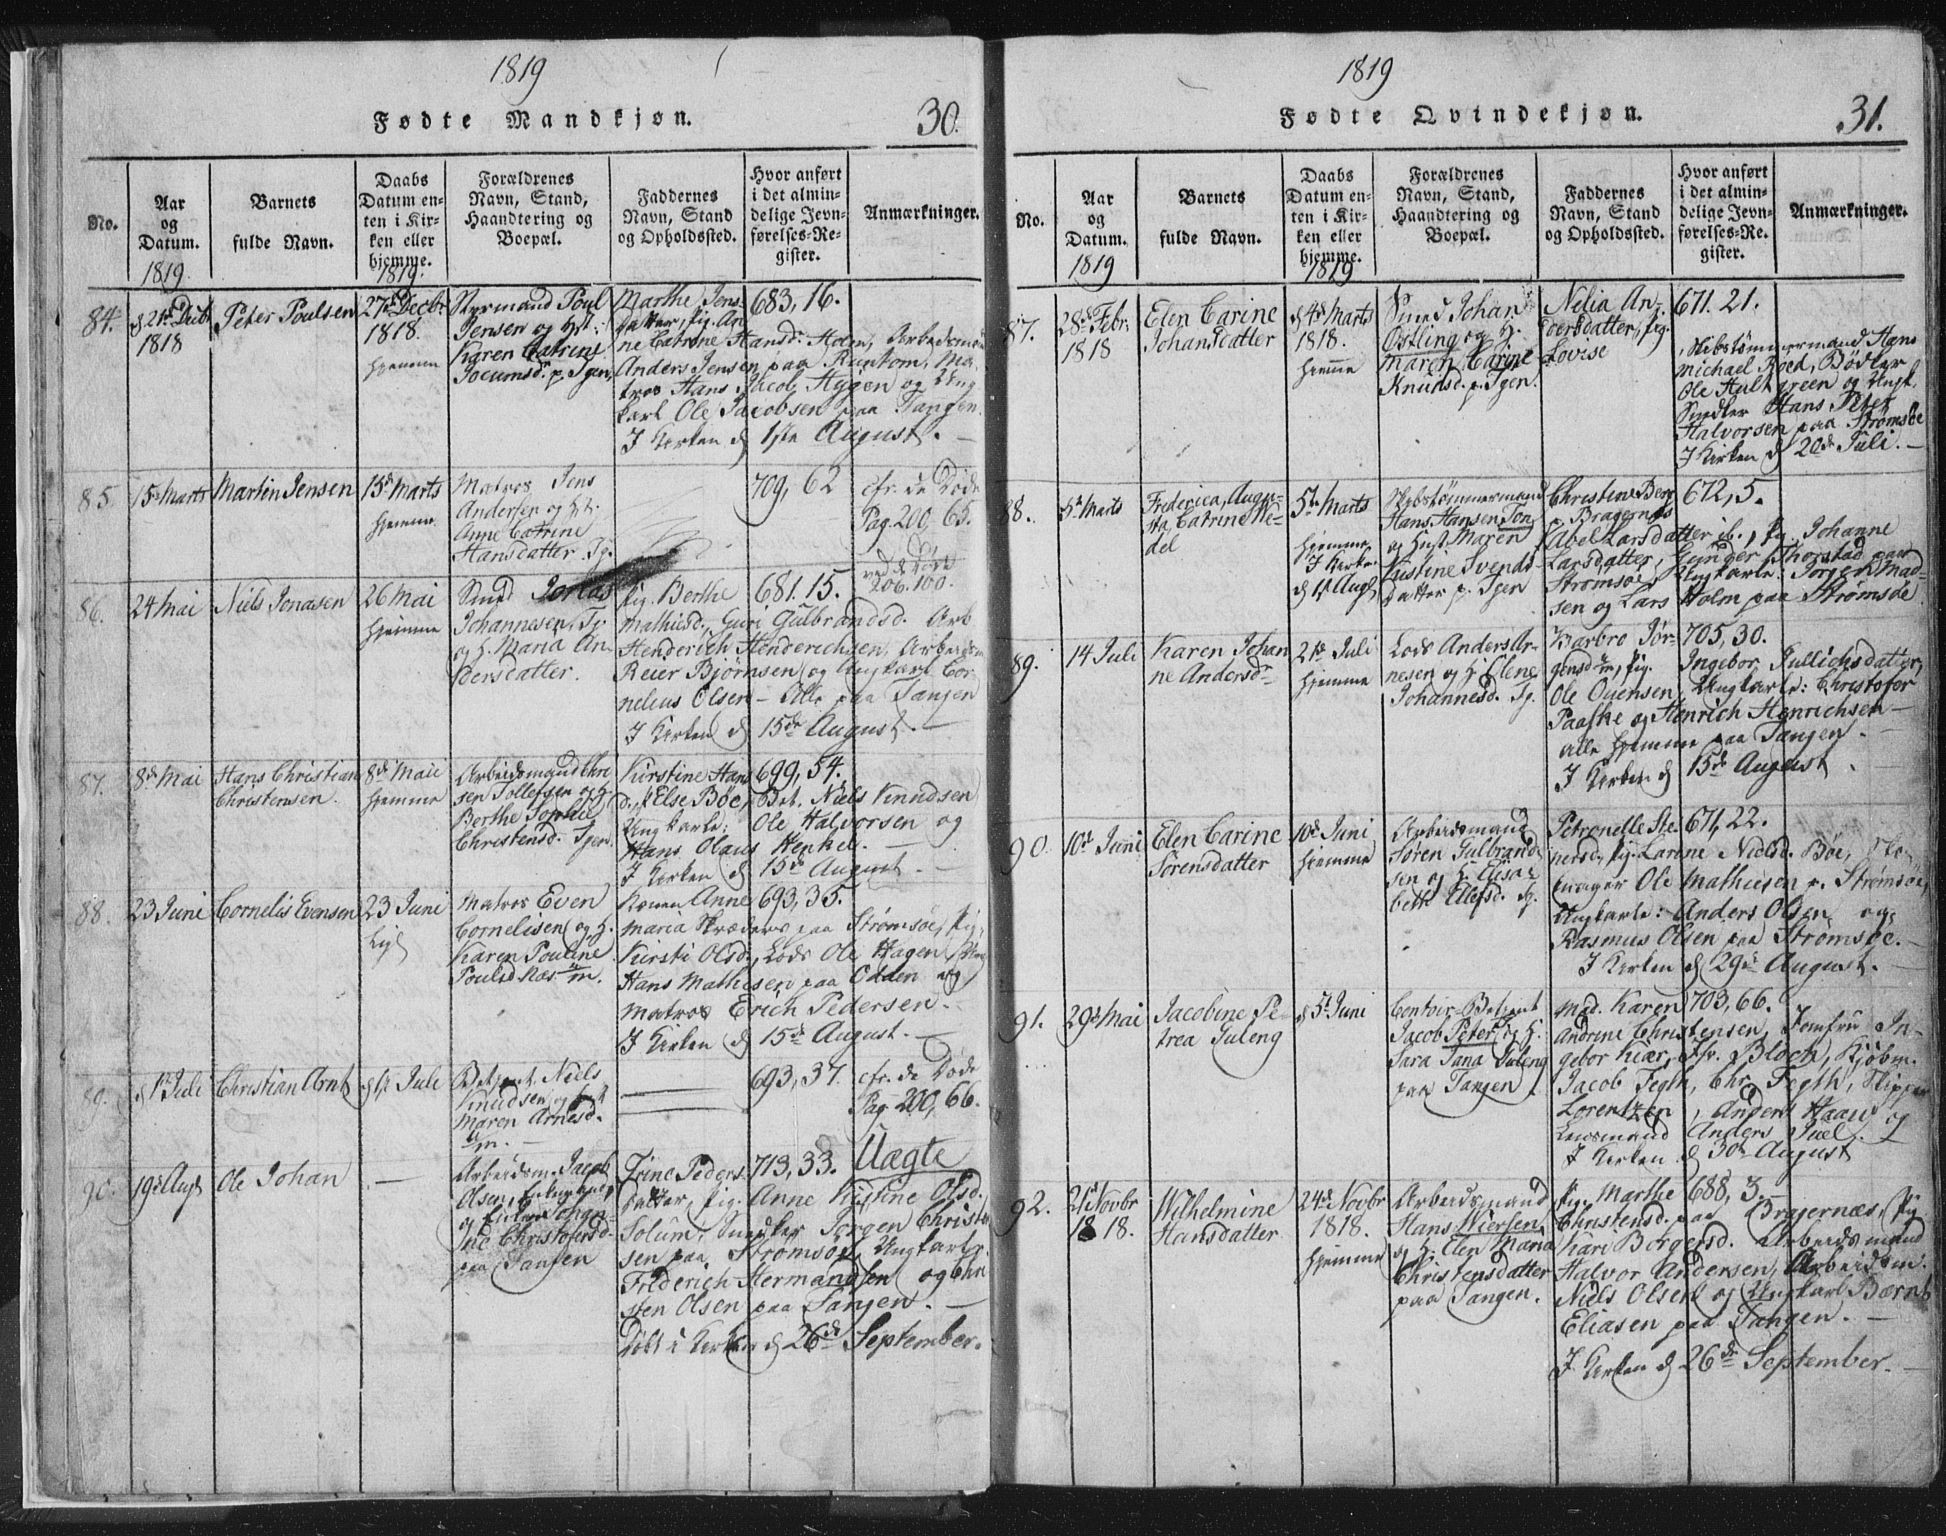 1819
Fødte Mandkjøn.
30.
No.
Aar
og
Datum.
1819.
Barnets
fulde Navn.
Daabs
Datum en-
ten i Kir-
ken eller
hjemme.
1819.
Forældrenes
Navn, Stand,
Haandtering og
Boepæl.
Faddernes
Navn, Stand
og Opholdssted.
Hvor anført
i det almin-
delige Jevn-
førelses-Re-
gister.
Anmærkninger.
84.
1818
Peter Poulsen
27de Decbr.
1818.
hjemme
Styrmand Poul
Jensen og H:
Karen Catrine
Jocumsd. p. Tgen,
Marthe Jens-
datter, pig. An-
ne Catrine Hansd: Holm, Arbeidsm
Anders Jensen paa Runtom, Ma-
tros Hans Jacob Hygen og Ung
karl Ole Jacobsen paa Tangen.
I Kirken d 1ste August. —
683, 16.
85.
15de Marts
Martin Jensen
15de Marts
hjemme
Matros Jens
Andersen og H:
Anne Catrine
Hansdatter Tg.
709, 62
cfr. de Døde
Pag. 200, 65.
86.
24 Mai
Niels Jonasen
26 Mai
hjemme
Smed Jonas
Johannesen, Tg.
og H. Maria An-
dersdatter.
pig. Berthe
Mathisd. Guri Gulbrandsd. Arb
Henderich Henderichsen, Arbeidsm
Reier Bjørnsen og Ungkarl Cor-
nelius Olsen — Alle paa Tangen
I Kirken d 15de August. —
681. 15.
ved d Døde
206. 100.
87.
8de Mai
Hans Christian
Christensen.
8de Maii
hjemme
Arbeidsmand Chri
sen Tollefsen og H.
Berthe Sophie
Christensd. Tgen.
Kirstine Hans
d, Else Böe, Bet. Niels Knudsen
Ungkarle: Ole Halvorsen og
Hans Olaus Henkel. —
I Kirken d 15de August. —
699, 54.
88.
23 Juni
Cornelis Evensen
23 Juni
Matros Even
Cornelisen og H.
Karen Pouline
Konen Anne
Maria Skræders paa Strømsøe, pig.
Kirsti Olsd. Lods Ole Hagen,
Hans Mathisen paa Odden og
Matros Erich Pedersen.
I Kirken d 15de August. —
693, 35.
89.
d 1ste Juli
Christian Arnt
Juli
Betjent Niels
Knudsen og
Maren Arnesd.
693, 37.
cfr. de Døde
Pag. 200, 66.
90.
19de Aug
Ole Johan
—
Arbeidsm. Jacob
Olsen,
og
Christofersd.
paa Tangen
Trine Peders-
datter, pig. Anne Kistine Olsd.
Solum, Snedker Jörgen Christen
sen paa Strømsøe, Ungkarle:
Friderich Hermandsen og Chri
sten Olsen paa Tangen. —
Døbt i Kirken d 26de September.
713, 33.
Uægte
1819
Fødte Qvindekjøn.
31.
No.
Aar
og
Datum.
1819
Barnets
fulde Navn.
Daabs
Datum en-
ten i Kir-
ken eller
hjemme.
1819
Forældrenes
Navn, Stand,
Haandtering og
Boepæl.
Faddernes
Navn, Stand
og Opholdssted.
Hvor anført
i det almin-
delige Jevn-
førelses-Re-
gister.
Anmærkninger.
87.
28de Febr.
1818
Elen Carine
Johansdatter
d 4de Marts
1818.
hjemme
Smed Johan
Östling og H.
Maren Carine
Knudsd. p. Tgen.
Nelia An-
dersdatter, pig.
Lovise
671. 21.
Skibstømmermand Hans
Michael Roed, Bødker
Ole Hultgreen og Ungk.
Snedker Hans Peter
Halvorsen paa Strømsøe
I Kirken d 20de Juli. —
88.
5te Marts
Frederica, Augu-
sta, Catrine We-
del
5te Marts
hjemme
I Kirken
d 1 Aug
Skibstømmermand
Hans Hansen
og Hust Maren
Kistine Svends-
datter p. Tgen
Christine Berg
Bragernæs
Abel Larsdatter ib., pig. Johanne
Larsdatter, Gunder Thorstad paa
Strømsøe, Ungkarle: Jørgen Mad-
sen og Lars Holm paa Strømsøe
672, 5.
89.
14 Juli
Karen Johan
ne Andersd
21de Juli
hjemme
Lods Anders Ar-
nesen og H. Elene
Johannesd. Tg.
Barbro Jör-
gensd, pig. Ingebor Jullichsdatter,
Ole Ovensen, Ungkarle: Christofer
Paaske og Henrich Henrichsen —
alle hjemme paa Tangen. —
I Kirken d 15de August.
705, 30.
90.
10de Juni
Elen Carine
Sørensdatter
10de Juni
hjemme
Arbeidsmand
Søren Gulbrand-
sen og H. Elisa-
beth Ellefsd. Tg.
Petronelle Ste-
persd. pig. Larine Nielsd. Böe,
mager Ole Mathiesen p. Strømsøe,
Ungkarle: Anders Olsen og
Rasmus Olsen paa Strømsøe. —
I Kirken d 29de August. —
671, 22.
91.
29de Mai
Jacobine Pe-
trea Juleng
d 5te Juni
Contoir-Betient
Jacob Peter og H.
Sara Tana Juleng
paa Tangen
Mad. Karen
Andrine Christensen, Jomfru In-
gebor Kiær, Hr. Bloch, Kjøbm.
Jacob Fegth, Chr. Fegth, Skipper
Lorentzen, Anders Haan og
Lensmand Anders Juel. —
I Kirken d 30te August
703, 66.
92.
21de Novbr
1818.
Wilhelmine
Hansdatter
24de Novbr
1818.
hjemme
Arbeidsmand
Hans Niersen
og H. Elen Maria
Christensdatter
paa Tangen.
pig. Marthe
Christensd. paa Bragernæs, pig
Kari Borgersd. Arbeidsmand
Halvor Andersen, Arbeidsm.
Niels Olsen og Ungkarl Bærnt
Eliasen paa Tangen. —
I Kirken d 26de September. —
688, 3.